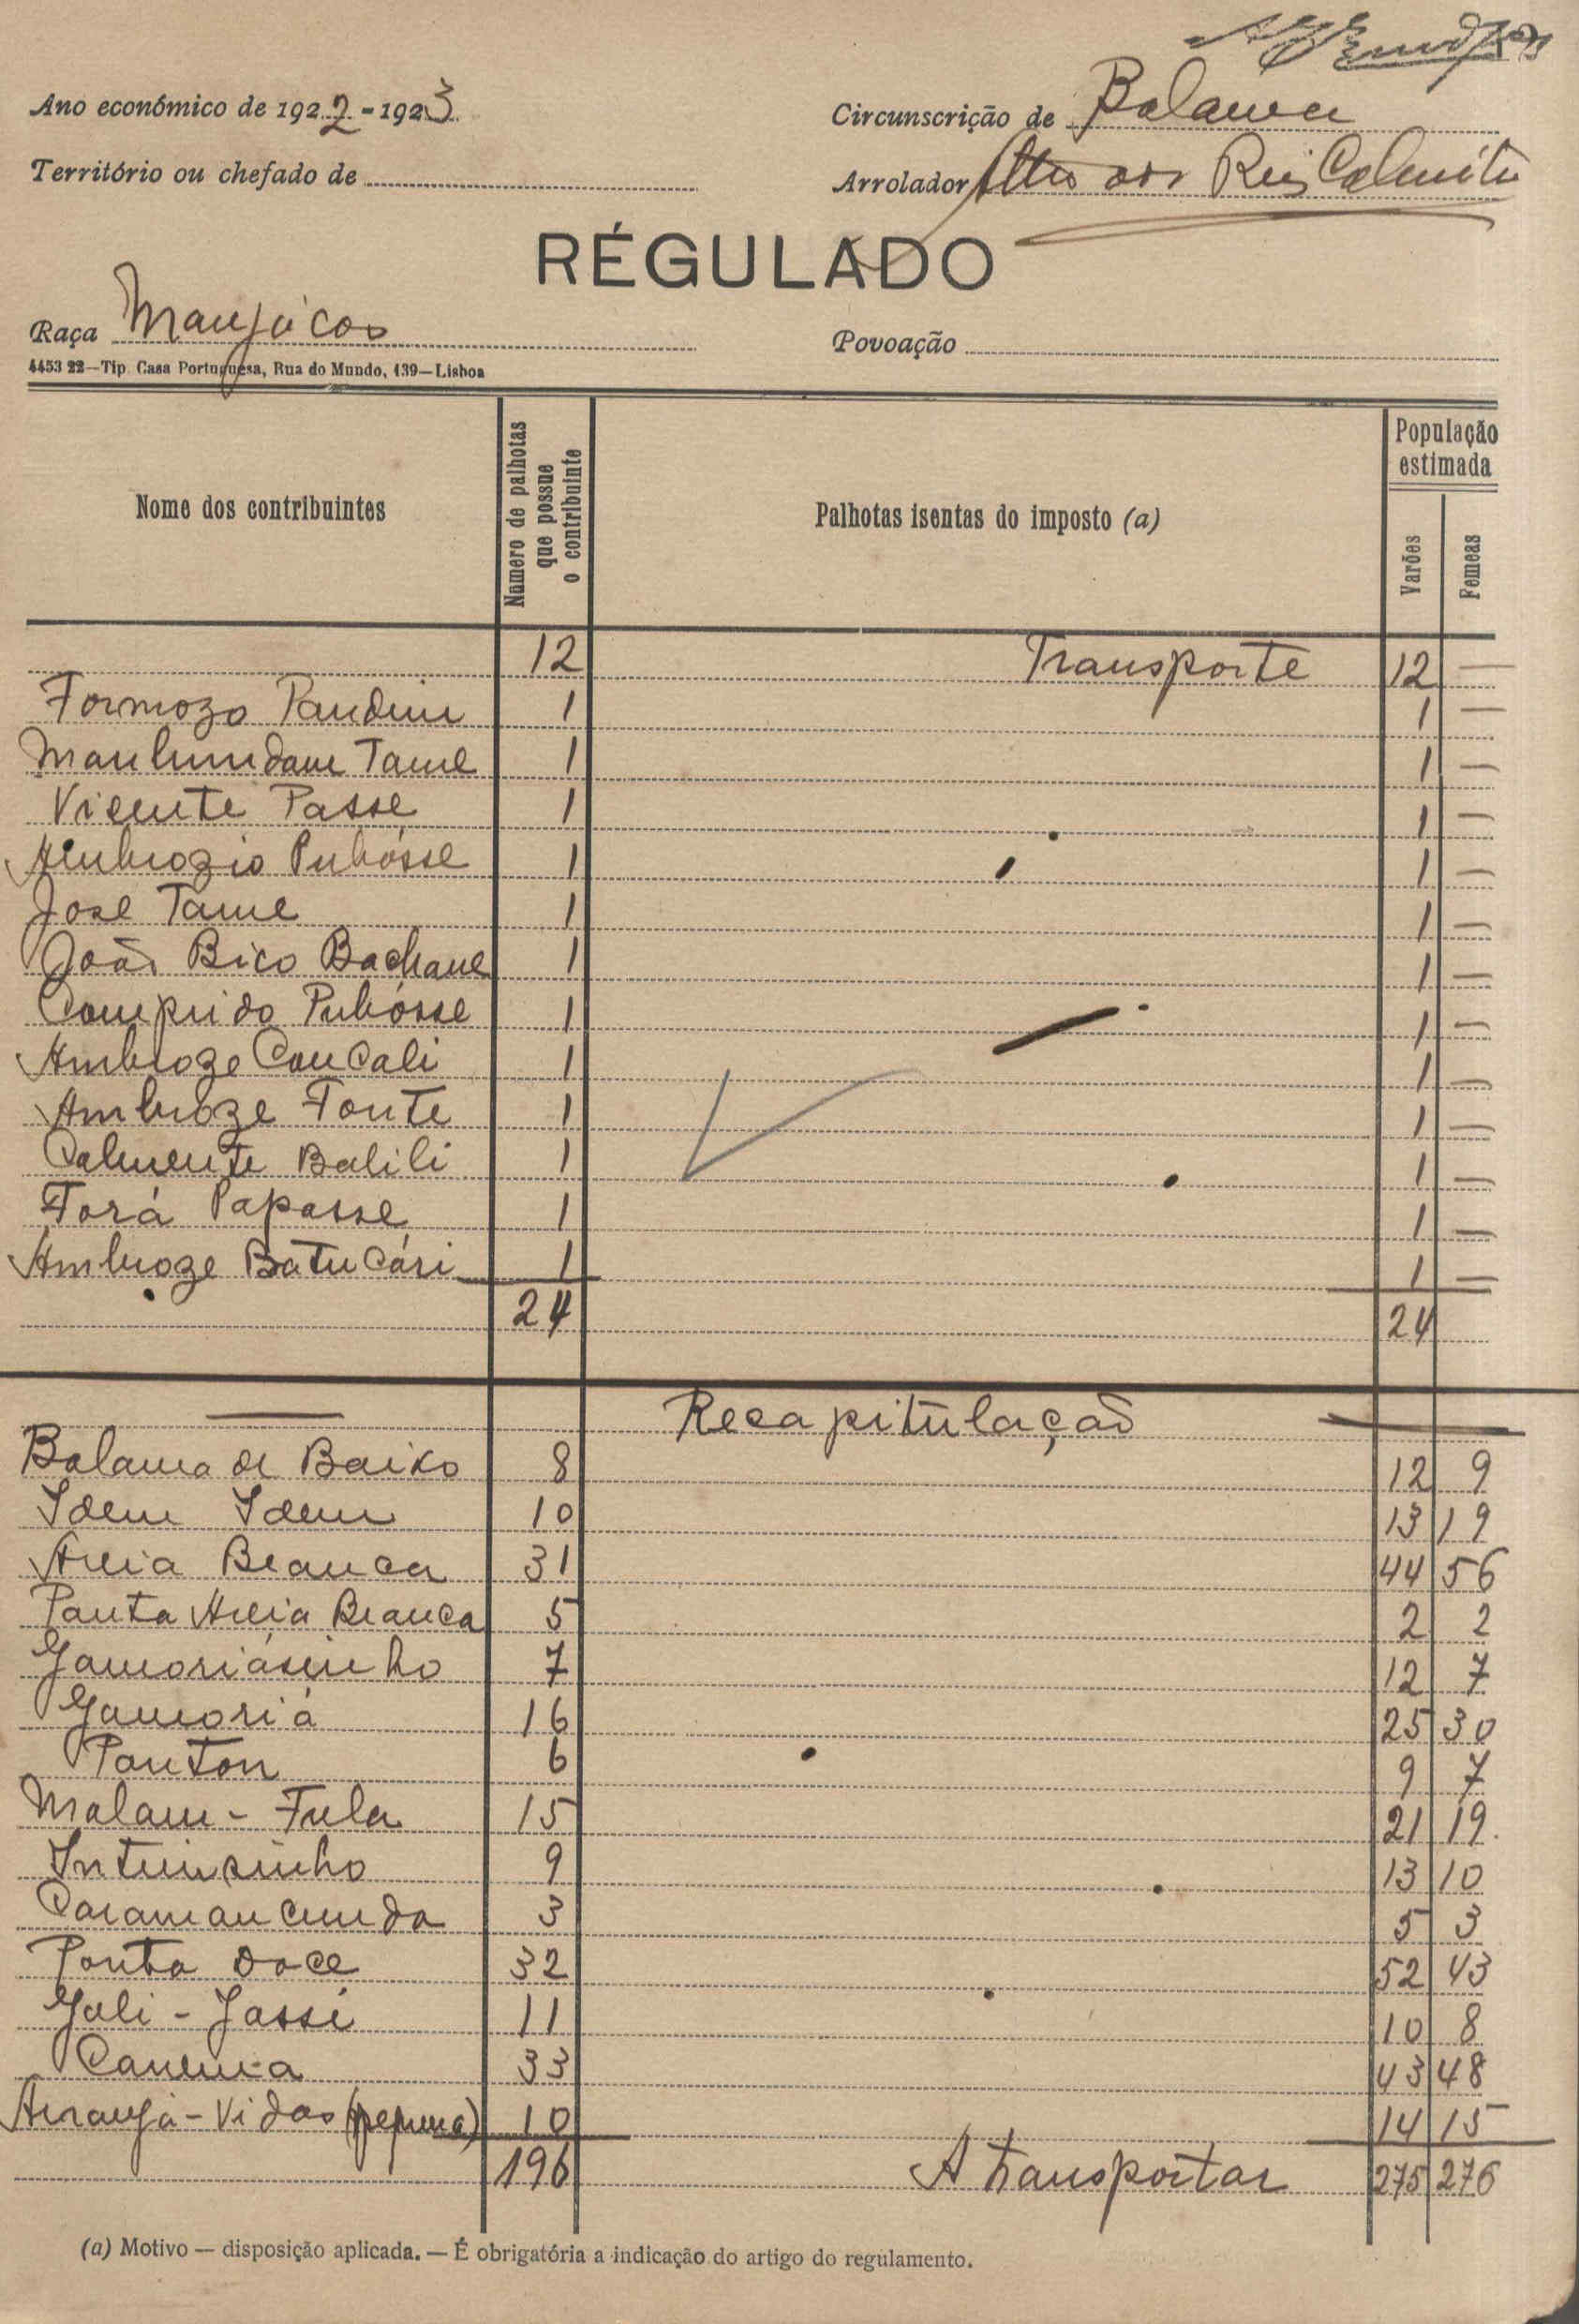 Ano económico de 1922-1923
Circunscrição de Bolama
Território ou chefado de
Arrolador Reis
RÉGULADO
Raça Manjácos
Povoação
4453 22—Tip. Casa Portuguesa, Rua do Mundo, 139—Lisboa
Nome dos contribuintes
Número de palhotas que possue o contribuinte
Palhotas isentas do imposto (a)
População estimada
Varões
Femeas
12 Transporte 12 —
Formozo 1 1 —
Tame 1 1 —
Vicente Passe 1 1 —
Ambrozio Pubósse 1 1 —
Jose Tame 1 1 —
João Bico Bachane 1 1 —
Comprido Pubósse 1 1 —
Ambroze Concali 1 1 —
Ambroze Fonte 1 1 —
Balili 1 1 —
Torá Papasse 1 1 —
Ambroze Batucári 1 1 —
24 24
— Recapitulação —
Bolama de Baixo 8 12 9
Idem Idem 10 13 19
Areia Branca 31 44 56
Ponta Areia Branca 5 2 2
Gamoriásinho 7 12 7
Gamoriá 16 25 30
Panton 6 9 7
Malam - Fula 15 21 19
9 13 10
3 5 3
Ponta Doce 32 52 43
Gali - Jassi 11 10 8
33 43 48
10 14 15
196 A transportar 275 276
(a) Motivo — disposição aplicada. — É obrigatória a indicação do artigo do regulamento.